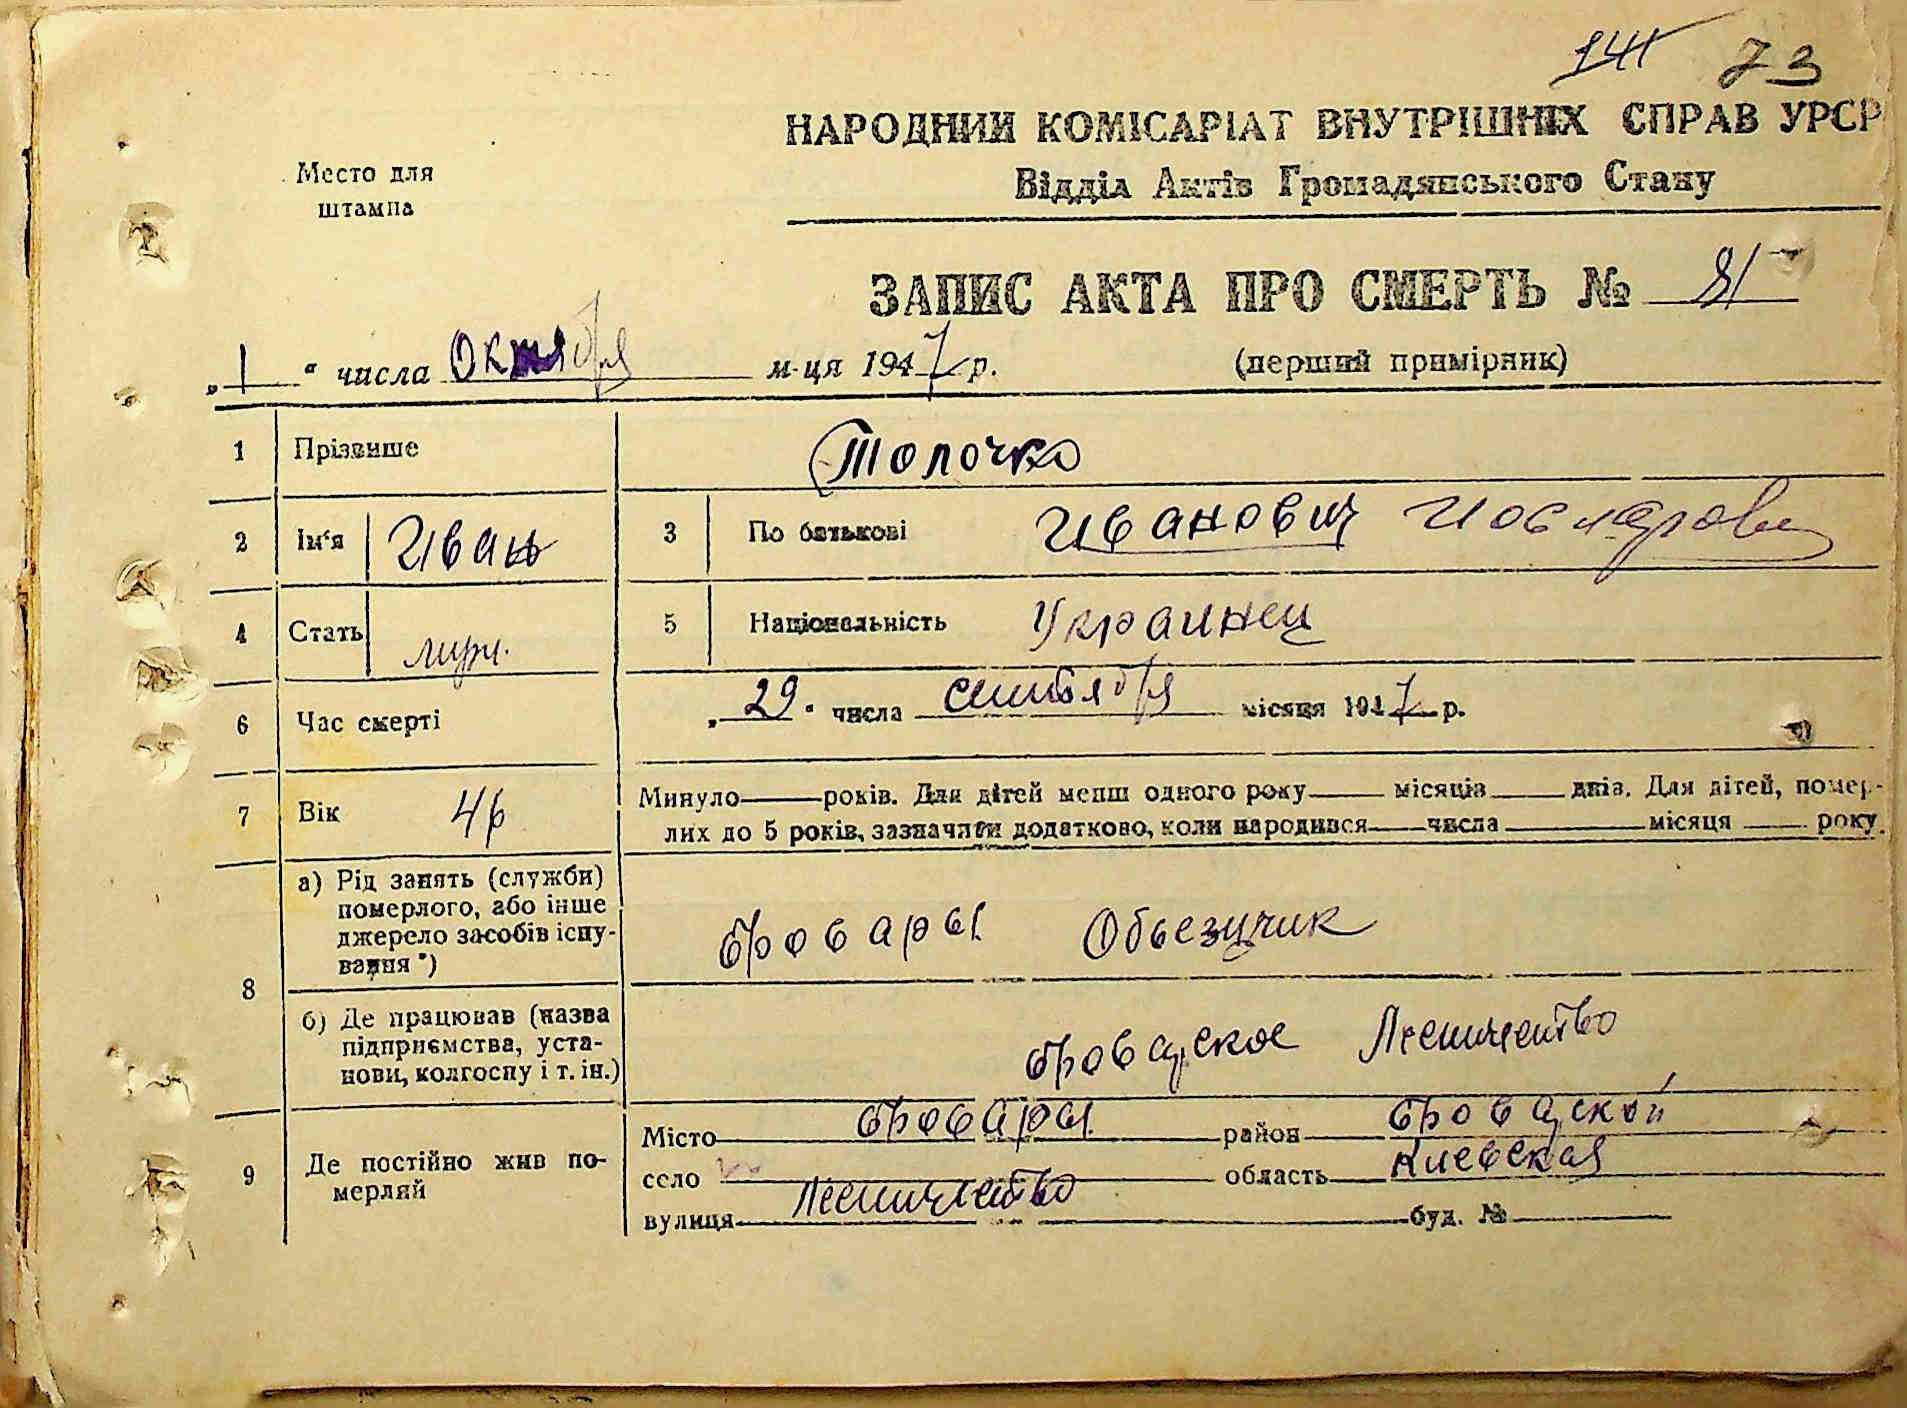 141 73
НАРОДНИЙ КОМІСАРІАТ ВНУТРІШНІХ СПРАВ УРСР
Место для
штампа
Відділ Актів Громадянського Стану
ЗАПИС АКТА ПРО СМЕРТЬ № 81
„1“ числа Октября м-ця 1947 р. (перший примірник)
1 Прізвише Толочко
2 Ім'я Иван 3 По батькові Иванович
4 Стать муж. 5 Національність Украинец
6 Час смерті „29“ числа сентября місяця 1947 р.
7 Вік Минуло — років. Для дітей менш одного року — місяців — днів. Для дітей, помер-
лих до 5 років, зазначати додатково, коли народився — числа — місяця — року.
8 а) Рід занять (служби)
померлого, або інше
джерело засобів існу-
вання *) Бровары Обьезчик
б) Де працював (назва
підприємства, уста-
нови, колгоспу і т. ін.) Броварское Лесничество
9 Де постійно жив по-
мерляй
Місто Бровары район Броварской
село область Киевская
вулиця Лесничество буд. №